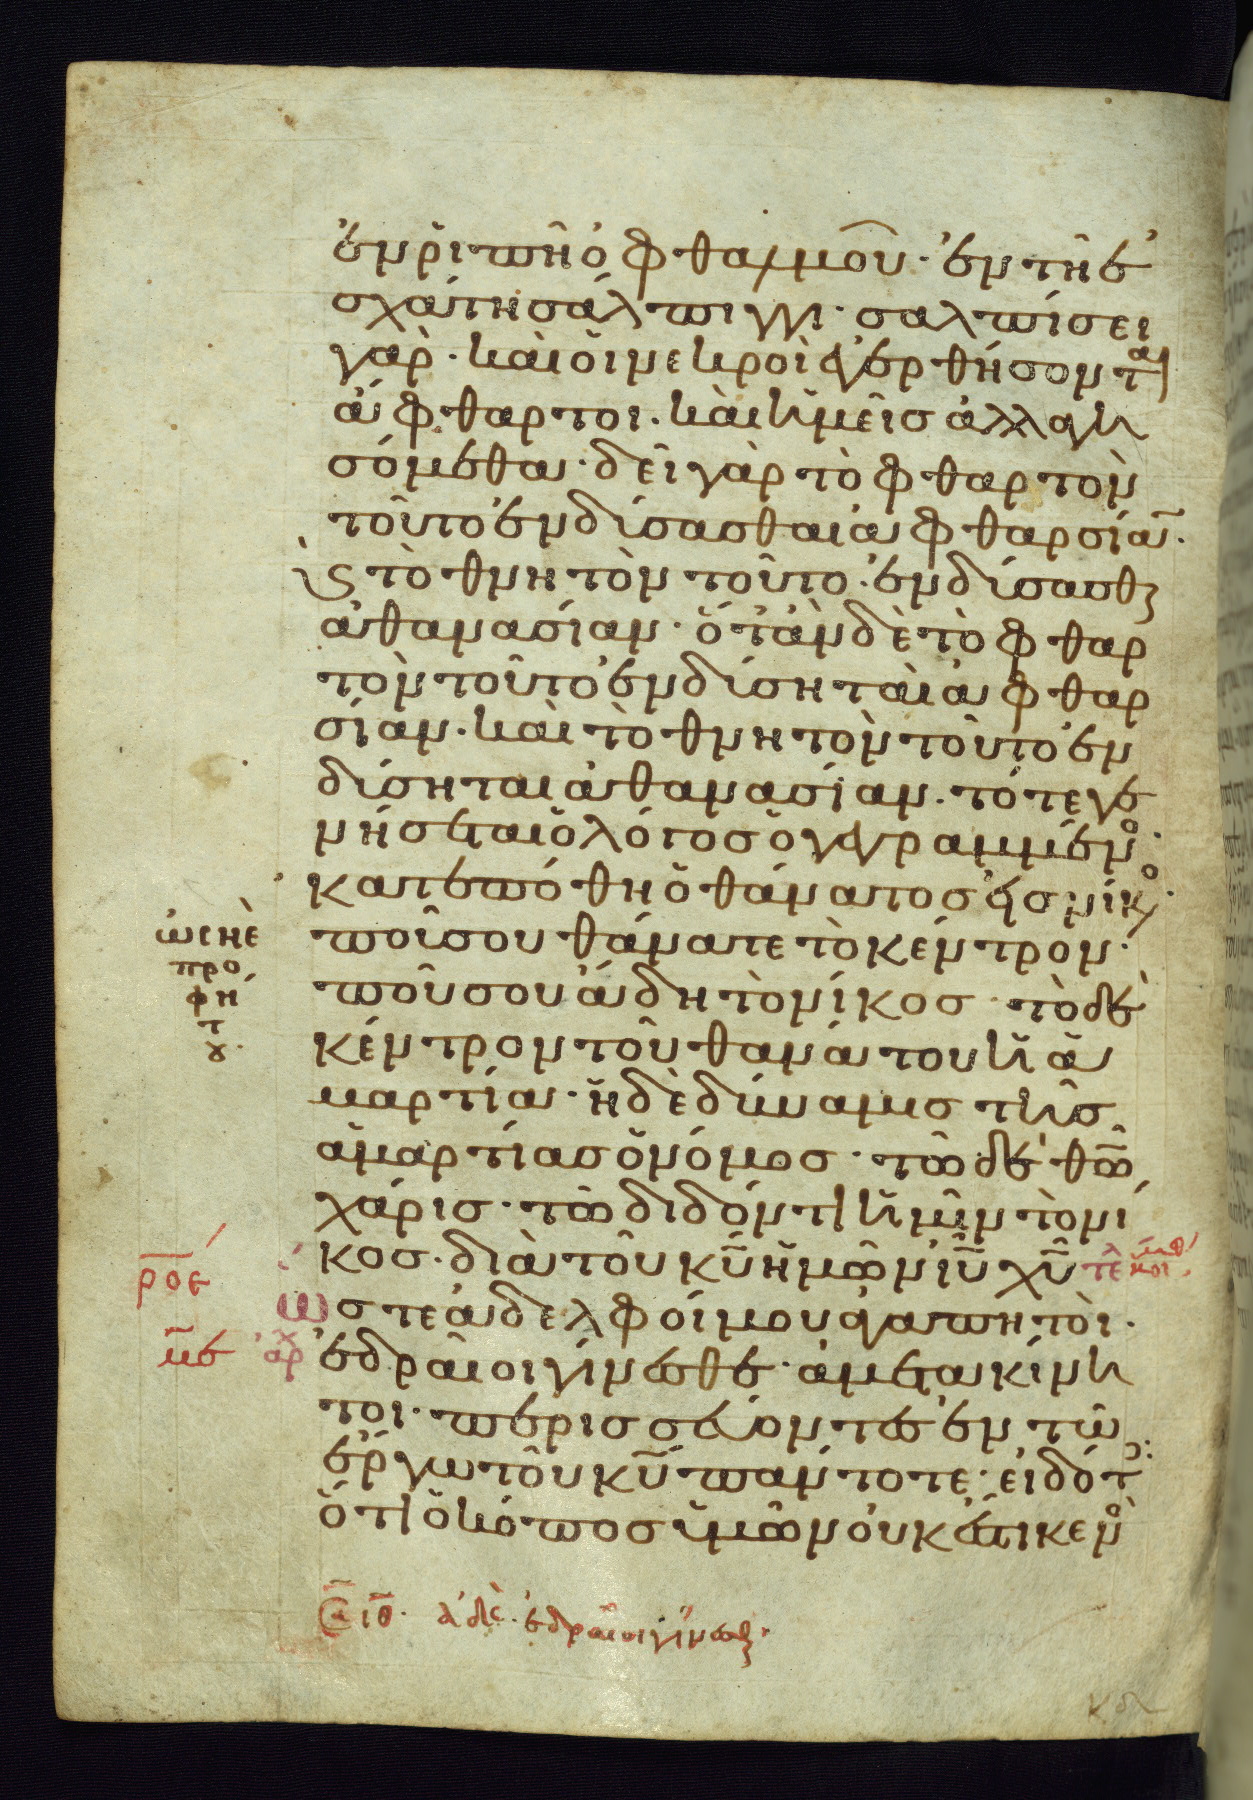 ἐν ῥιπῆ ὀφθαλμοῦ· ἐν τῆ ἐ
σχάτη σάλπιγγι· σαλπίσει
γάρ· καὶ οἱ νεκροὶ ἐγερθήσονται
ἄφθαρτοι· καὶ ἡμεῖς ἀλλαγη
σόμεθα· δεῖ γὰρ τὸ φθαρτὸν
τοῦτο ἐνδύσασθαι ἀφθαρσίαν·
καὶ τὸ θνητὸν τοῦτο· ἐνδύσασθαι
ἀθανασίαν· ὅταν δὲ τὸ φθαρ
τὸν τοῦτο ἐνδύσηται ἀφθαρ
σίαν· καὶ τὸ θνητὸν τοῦτο ἐν
δύσηται ἀθανασίαν· τότε γε
νήσεται ὁ λόγος ὁ γεγραμμένος·
κατεπόθη ὁ θάνατος εἰς νίκος·
ὡσηὲ
προ
φή
τ
ου·
ποῦ σου θάνατε τὸ κέντρον·
ποῦ σου ἅδη τὸ νίκος· τὸ δὲ
κέντρον τοῦ θανάτου ἡ ἁ
μαρτία· ἡ δὲ δύναμις τῆς
ἁμαρτίας ὁ νόμος· τῶ δὲ θῶ
χάρις· τῶ διδόντι ἡμῖν τὸ νί
κος· διὰ τοῦ κυ ἡμῶν ιυ χυ τε
ροε
ὥστε ἀδελφοί μου ἀγαπητοὶ·
με αρχ
ἑδραῖοι γίνεσθε· ἀμετακίνη
τοι· περισσεύοντες ἐν τῶ
ἔργω τοῦ κυ πάντοτε· εἰδότες
ὅτι ὁ κόπος ὑμῶν οὐκ ἔστι κενὸς
ἀδε· ἑδραῖοι γίνεσθε·